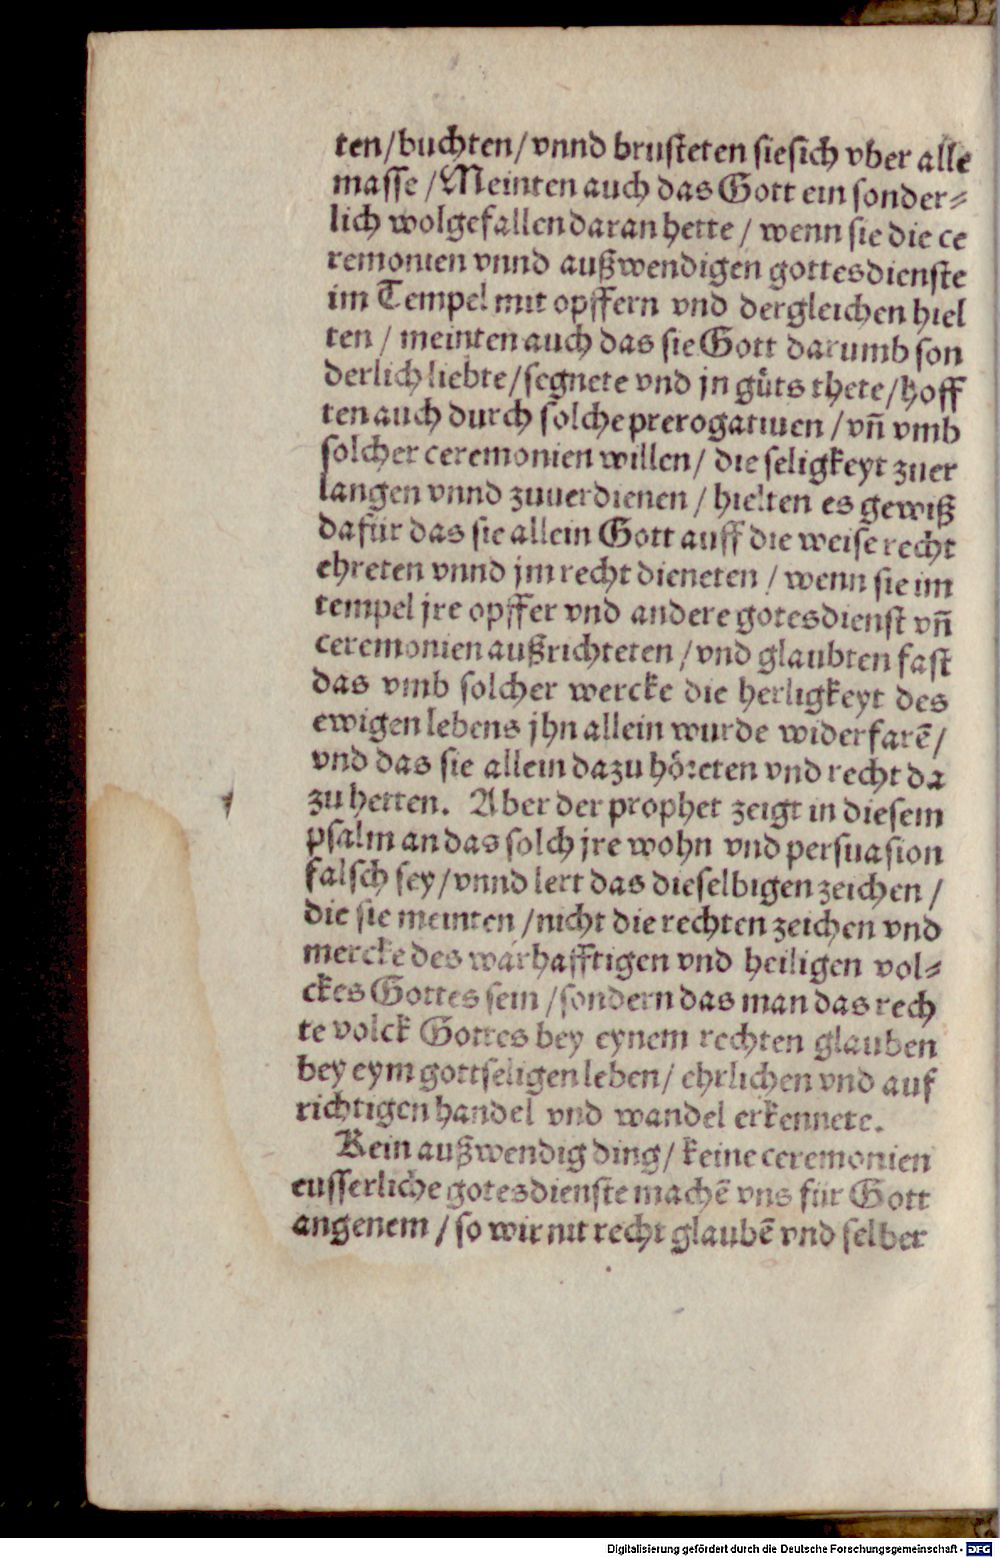 ten/buchten/vnnd brusteten siesich vber alle
masse /Meinten auch das Gott ein sonder⸗
lich wolgefallen daran hette / wenn sie die ce
remonien vnnd außwendigen gottesdienste
im Tempel mit opffern vnd dergleichen hiel
ten / meinten auch das sie Gott darumb son
derlich liebte/segnete vnd jn gůts thete/hoff
ten auch durch solche prerogatiuen /vñ vmb
solcher ceremonien willen/ die seligkeyt zuer
langen vnnd zuuerdienen / hielten es gewiß
dafür das sie allein Gott auff die weise recht
ehreten vnnd jm recht dieneten / wenn sie im
tempel jre opffer vnd andere gotesdienst vñ
ceremonien außrichteten /vnd glaubten fast
das vmb solcher wercke die herligkeyt des
ewigen lebens jhn allein wurde widerfarẽ/
vnd das sie allein dazu höreten vnd recht da
zu hetten. Aber der prophet zeigt in diesem
psalm an das solch jre wohn vnd persuasion
falsch sey/vnnd lert das dieselbigen zeichen /
die sie meinten /nicht die rechten zeichen vnd
mercke des warhafftigen vnd heiligen vol⸗
ckes Gottes sein /sondern das man das rech
te volck Gottes bey eynem rechten glauben
bey eym gottseligen leben/ ehrlichen vnd auf
richtigen handel vnd wandel erkennete.
Kein außwendig ding/ keine ceremonien
eusserliche gotesdienste machẽ vns für Gott
angenem /so wir nit recht glaubẽ vnd selber
Digitalisierung gefördert durch die Deutsche Forschungsgemeinschaft - DFG